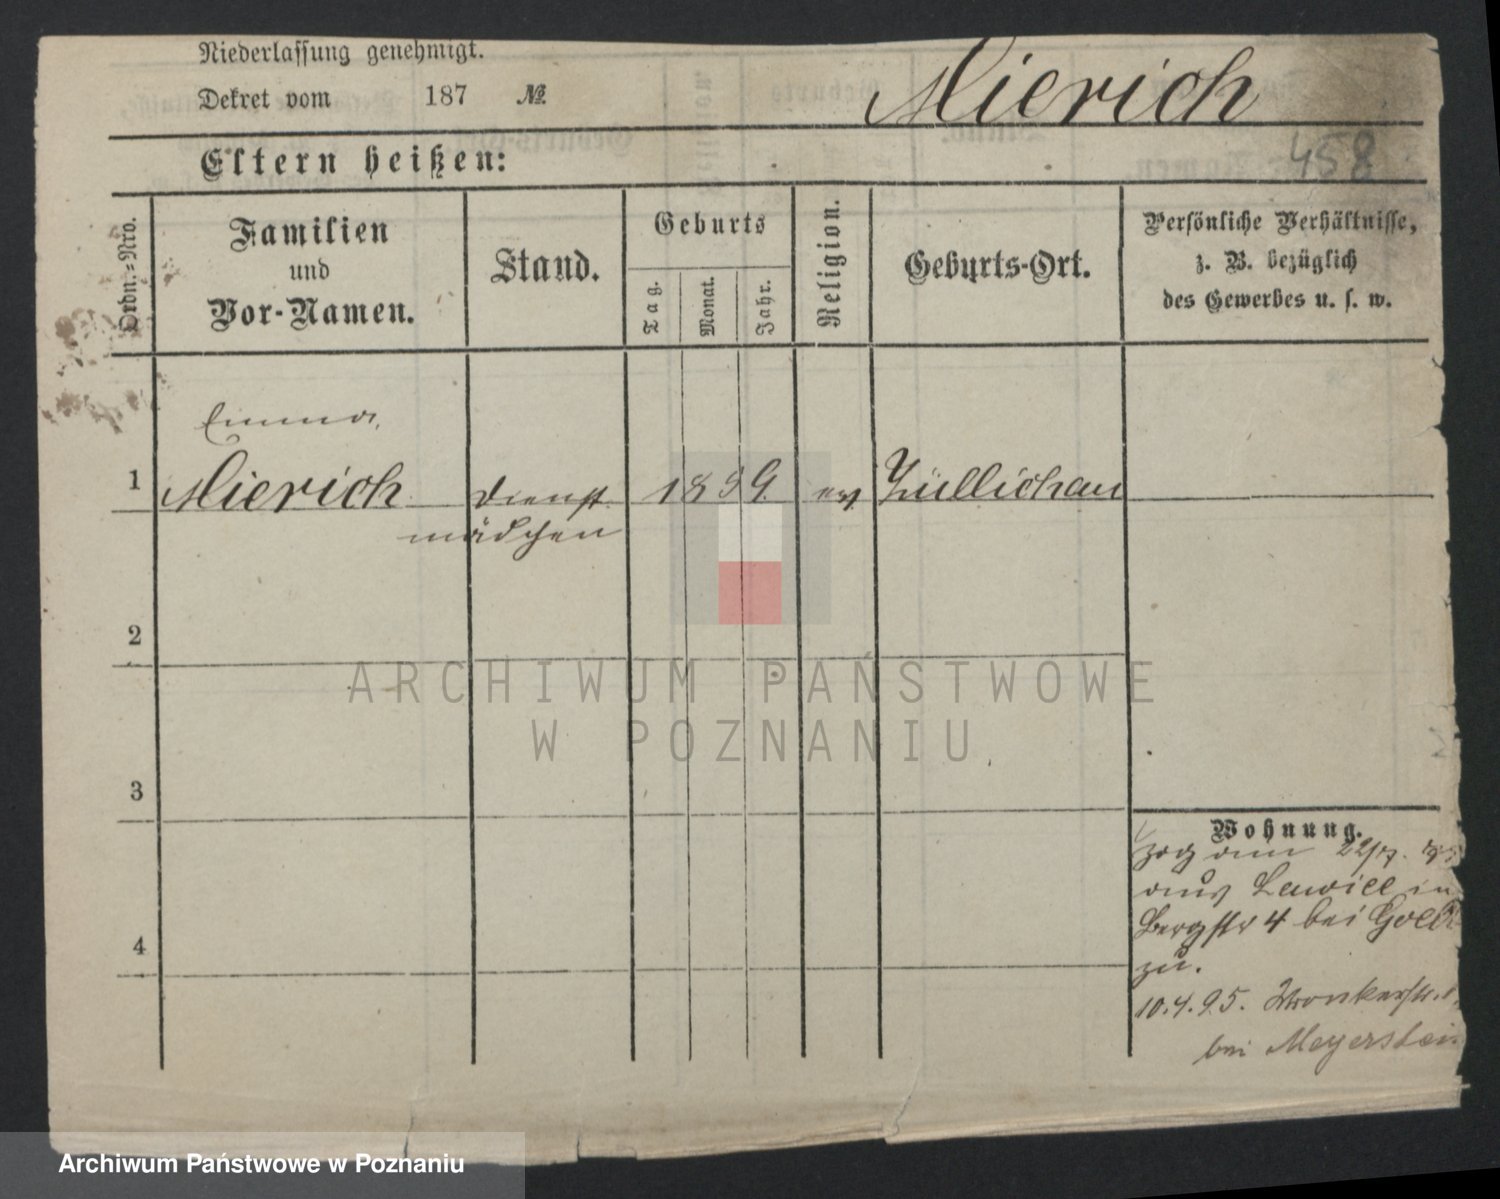 Niederlassung genehmigt.
Dekret vom 187 №
Mierich
458
Eltern heißen:
Ordn.-Nro.
Familien
und
Vor-Namen.
Stand.
Geburts
Tag.
Monat.
Jahr.
Religion.
Geburts-Ort.
Persönliche Verhältnisse,
z. B. bezüglich
des Gewerbes u. s. w.
Emma
1 Mierich Dienst 1859 ev Züllichau
mädchen
2
ARCHIWUM PAŃSTWOWE
W POZNANIU
3
Wohnung.
zog am 22/7.
aus Lawice in
Bergstr 4 bei
zu.
4
10.4.95. Wronkerstr.
bei Meyerstein
Archiwum Państwowe w Poznaniu